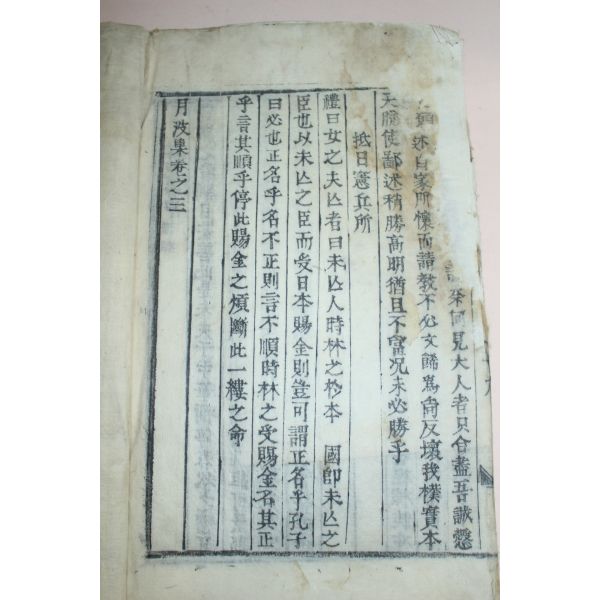 奈何見大人者只合盡吾誠慤
述自家所懷而請敎不必文餙爲尙反壞我樸實本
天隱使鄙述稍勝高明猶且不當况未必勝乎
抵日憲兵所
禮曰女之夫亾者曰未亾人時林之於本 國卽未亾之
臣也以未亾之臣而受日本賜金則豈可謂正名乎孔子
曰必也正名乎名不正則言不順時林之受賜金名其正
乎言其順乎停此賜金之煩斷此一縷之命
月波集卷之三